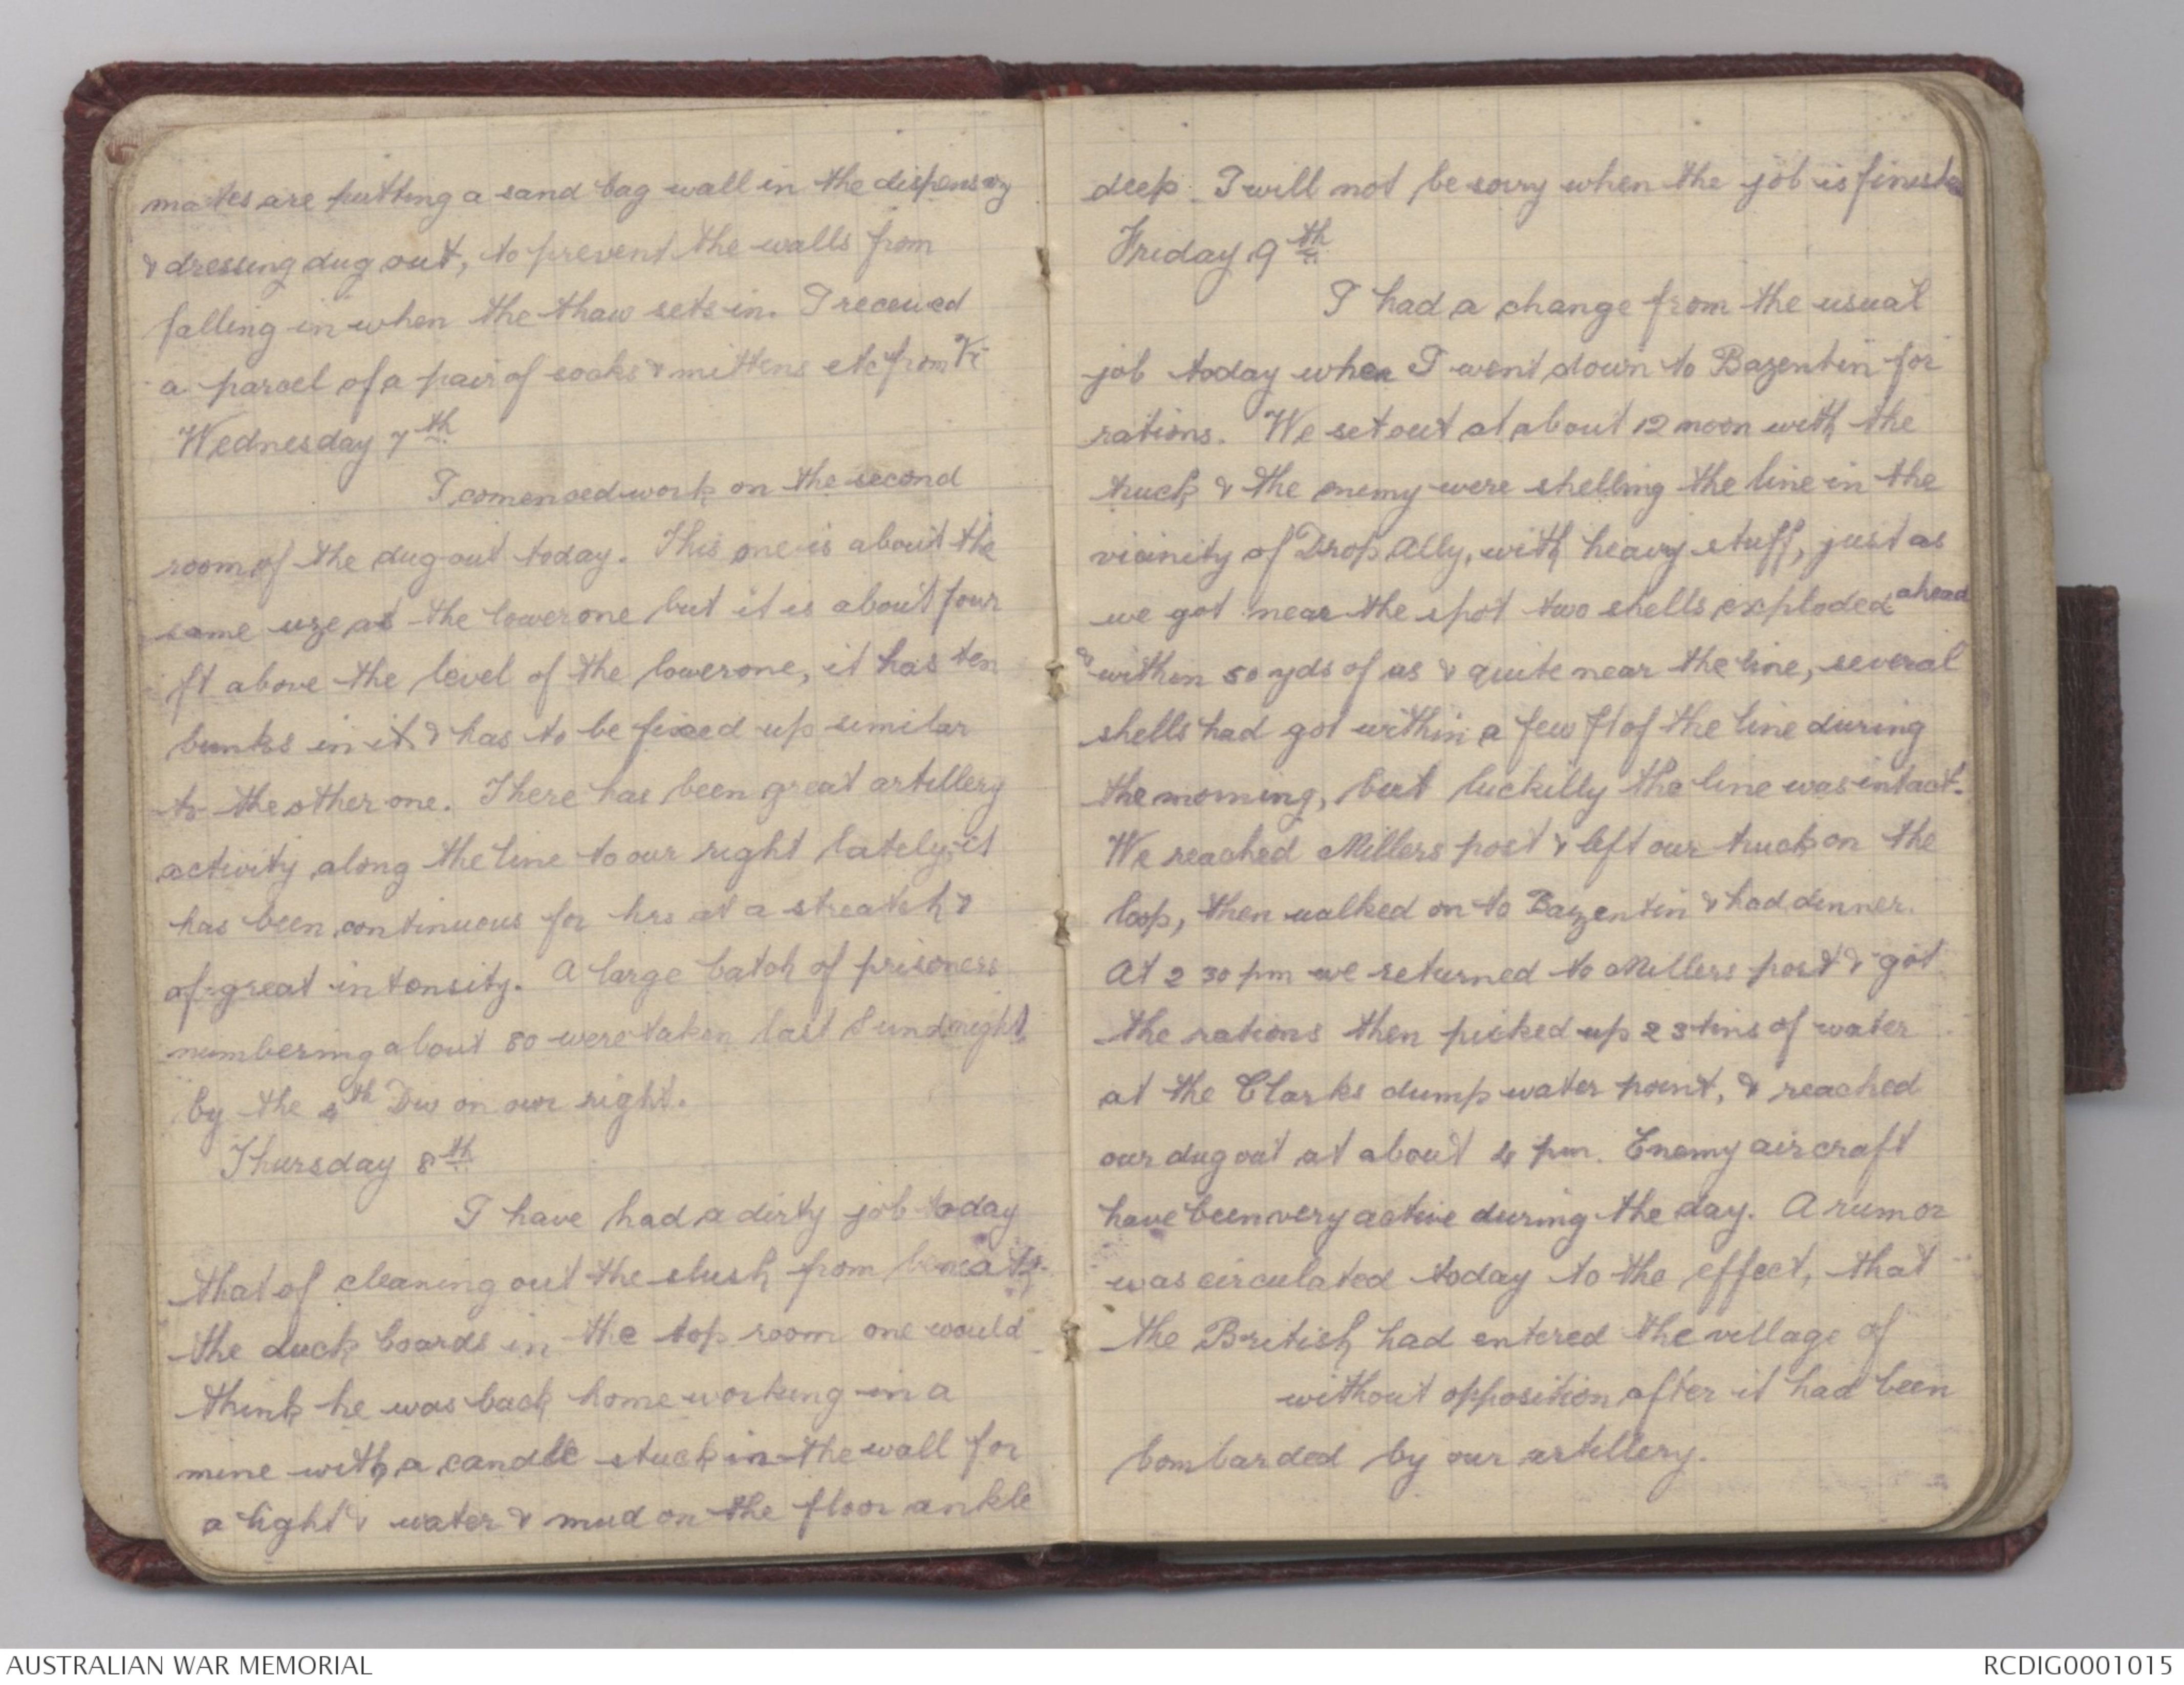 mates are putting a sand bag wall in the dispensary
& dressing dug out, to prevent the walls from
falling in when the thaw sets in. I received
a parcel of a pair of socks & mittens etc from
Wednesday 7th
I comenced work on the second
room of the dug out today. This one is about the
same size as the lower one but it is about four
ft above the level of the lower one, it has ten
bunks in it & has to be fixed up similar
to the other one. There has been great artillery
activity along the line to our right lately, it
has been continuous for hrs at a streatch &
of great intensity. A large batch of prisoners
numbering about 80 were taken last night,
by the 4th Div on our right.
Thursday 8th
I have had a dirty job today
that of cleaning out the slush from beneath
the duck boards in the top room one would
think he was back home working in a
mine with a candle stuck in the wall for
a light & water & mud on the floor ankle
deep. I will not be sorry when the job is
Friday 9th
I had a change from the usual
job today when I went down to Bazentin for
rations. We set out at about 12 noon with the
truck & the enemy were shelling the line in the
vicinity of Drop Ally, with heavy stuff, just as
we got near the spot two shells exploded ahead
& within 50 yds of us & quite near the line, several
shells had got within a few ft of the line during
the morning, but luckilly the line was intact.
We reached Millers post & left our truck on the
loop, then walked on to Bazentin & had dinner.
At 2 30 pm we returned to Millers post & got
the rations then picked up 23 tins of water
at the Clarks dump water point, & reached
our dug out at about 4 pm. Enemy air craft
have been very active during the day. A rumor
was circulated today to the effect, that
the British had entered the village of
without opposition after it had been
bombarded by our artillery.
AUSTRALIAN WAR MEMORIAL
RCDIG0001015